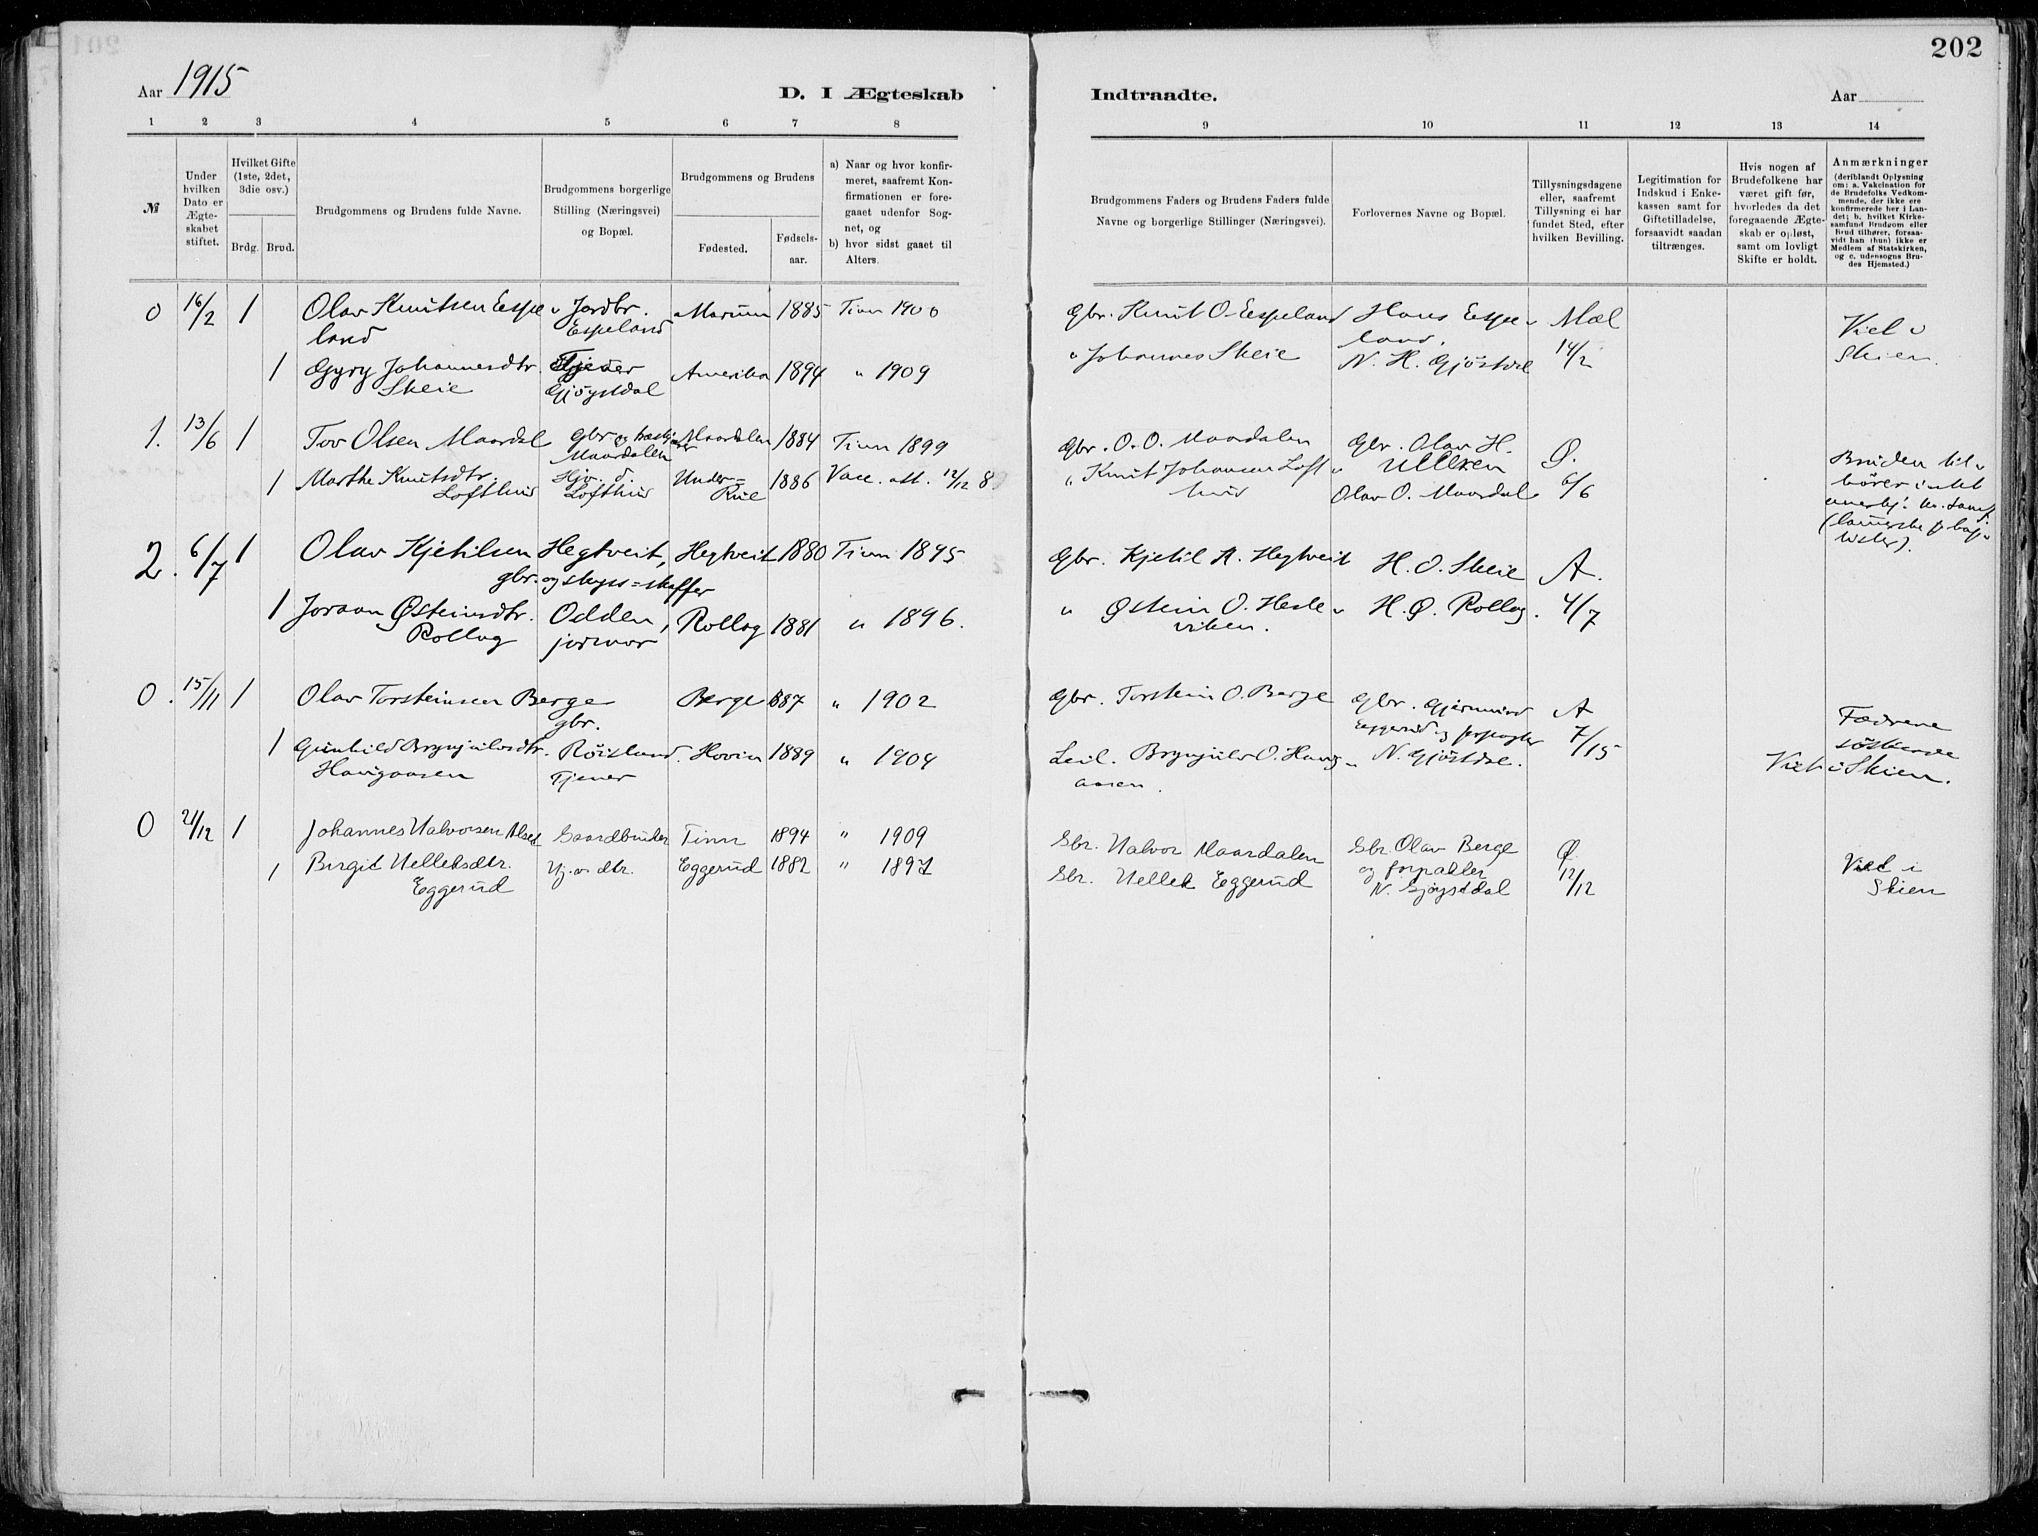 202
Aar 1915
D. I Ægteskab
Indtraadte.
Aar
1 2 3 4 5 6 7 8 9 10 11 12 13 14
№
Under hvilken Dato er Ægteskabet stiftet.
Hvilket Gifte (1ste, 2det, 3die osv.)
Brdg. Brud.
Brudgommens og Brudens fulde Navne.
Brudgommens borgerlige Stilling (Næringsvei) og Bopæl.
Brudgommens og Brudens
Fødested.
Fødselsaar.
a) Naar og hvor konfirmeret, saafremt Konfirmationen er foregaaet udenfor Sognet, og
b) hvor sidst gaaet til Alters.
Brudgommens Faders og Brudens Faders fulde Navne og borgerlige Stillinger (Næringsvei).
Forlovernes Navne og Bopæl.
Tillysningsdagene eller, saafremt Tillysning ei har fundet Sted, efter hvilken Bevilling.
Legitimation for Indskud i Enkekassen samt for Giftetilladelse, forsaavidt saadan tiltrænges.
Hvis nogen af Brudefolkene har været gift før, hvorledes da det foregaaende Ægteskab er opløst, samt om lovligt Skifte er holdt.
Anmærkninger (deriblandt Oplysning om: a. Vakcination for de Brudefolks Vedkommende, der ikke ere konfirmerede her i Landet; b. hvilket Kirkesamfund Brudgom eller Brud tilhører, forsaavidt han (hun) ikke er Medlem af Statskirken, og c. udensogns Brudes Hjemsted.)
0 16/2 1 Olav Knutsen Espeland Jordbr. Espeland 1885 Tinn 1900 Gbr. Knut O. Espeland Hans Espeland. Mæl 14/2 Viet i Skien.
1 Gyry Johannesdtr. Skeie Tjener Gjøystdal Amerika 1894 " 1909 " Johannes Skeie N. H. Gjøstdal
1. 13/6 1 Tov Olsen Maardal Gbr. og Maardalen Maardalen 1884 Tinn 1899 Gbr. O. O. Maardalen Gbr. Olav H. Ø. 6/6
1 Marthe Knutsdtr. Lofthus Hjv. d. Lofthus Under= Rue 1886 Vacc. att. 12/12 8. " Knut Johansen Lofthus Olav O. Maardal Bruden tilhører
2. 6/7 1 Olav Kjetilsen Hegtveit, gbr. og skyss=skaffer Hegtveit 1880 Tinn 1895 Gbr. Kjetil A. Hegtveit H. O. Skeie A. 4/7
1 Joraan Østeinsdtr. Rollag Odden, jormor Rollag 1881 " 1896. " Østein O. Hesleviken. H. Ø. Rollag.
0. 15/11 1 Olav Torsteinsen Berge gbr. Berge 1887 " 1902 Gbr. Torstein O. Berge Gbr. Gjermund Eggerud og forpagter A 7/15 Fædrene
1 Gunhild Brynjulvsdtr. Haugaasen Røisland. Tjener Hovin 1889 " 1904 Leil. Brynjulv O. Haugaasen. N. Gjøstdal. Viet i Skien.
0 21/12 1 Johannes Halvorsen Gaardbruker Tinn 1894 " 1909 Gbr. Halvor Maardalen Gbr. Olav Berge Ø 12/12 Viet i Skien
1 Birgit Helleksdtr. Eggerud Hj.v. dtr. Eggerud 1882 " 1897 Gbr. Hellek Eggerud og forpakter N. Gjøystdal